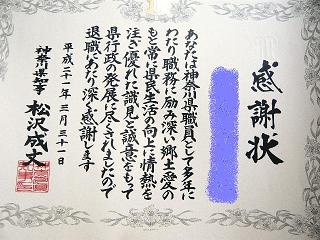 感謝状
あなたは神奈川県職員として多年に
わたり職務に励み深い郷土愛の
もと常に県民生活の向上に情熱を
注ぎ優れた識見と誠意をもって
県行政の発展に尽くされましたので
退職にあたり深く感謝します
平成二十一年三月三十一日
神奈川県知事 松沢成文